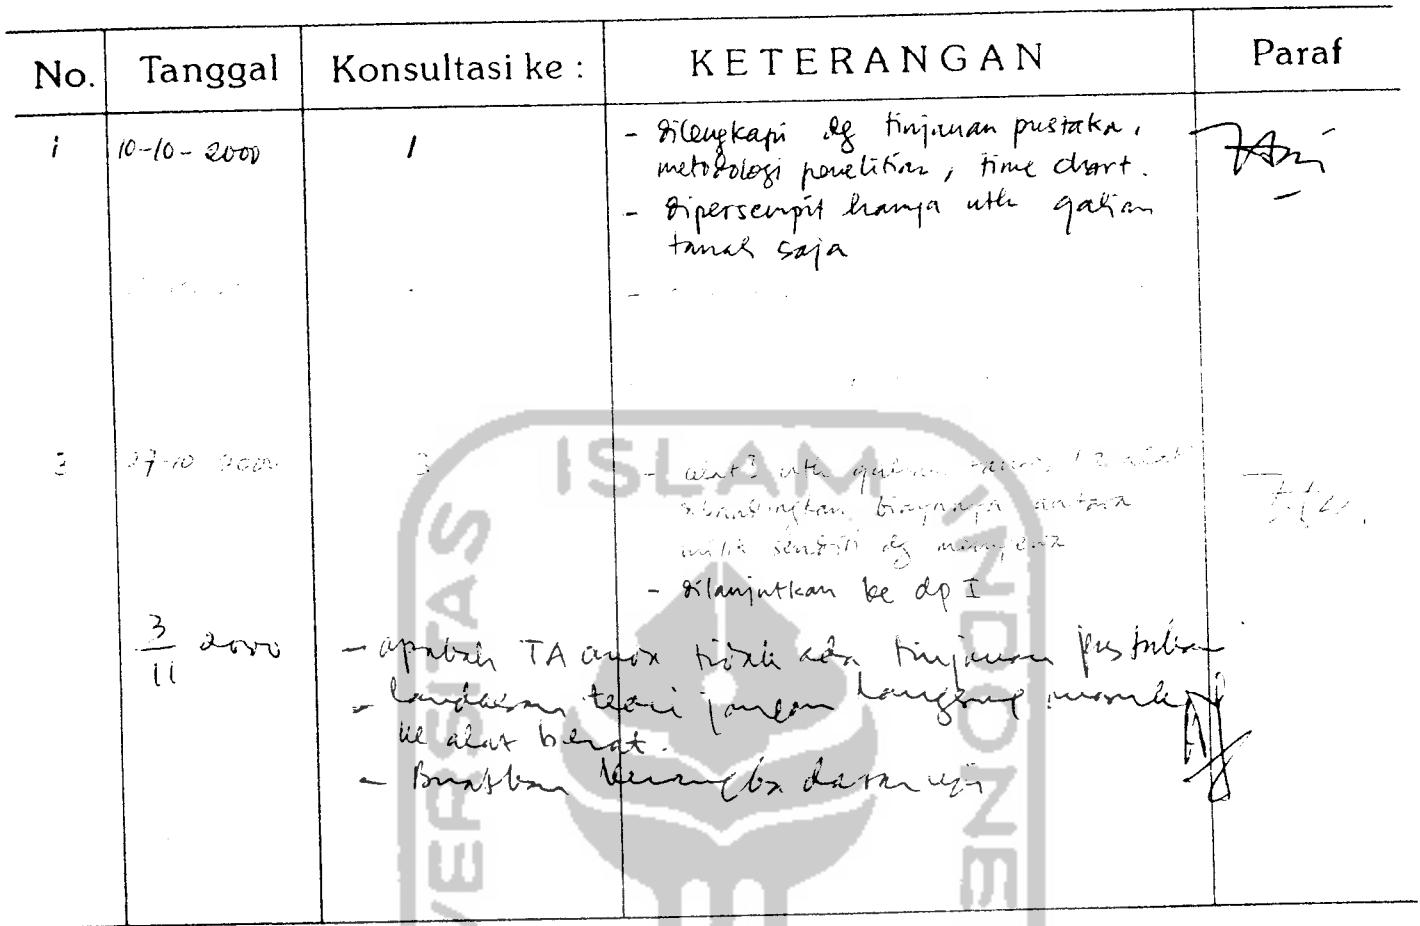 No. Tanggal Konsultasi ke : KETERANGAN Paraf
1 10-10-2000 1 - dilengkapi dg tinjauan pustaka,
metodologi penelitian, time chart.
- dipersempit hanya utk galian
tanah saja
3 27-10 2000 3 - alat2 utk galian tanah
dibandingkan biayanya antara
milik sendiri dg menyewa
- dilanjutkan ke dp I
3/11 2000 - apakah TA anda tidak ada tinjauan pustaka
- landasan teori jangan langsung masuk
ke alat berat.
- Buatkan kerangka
ISLAM
VERSITAS
INDONE